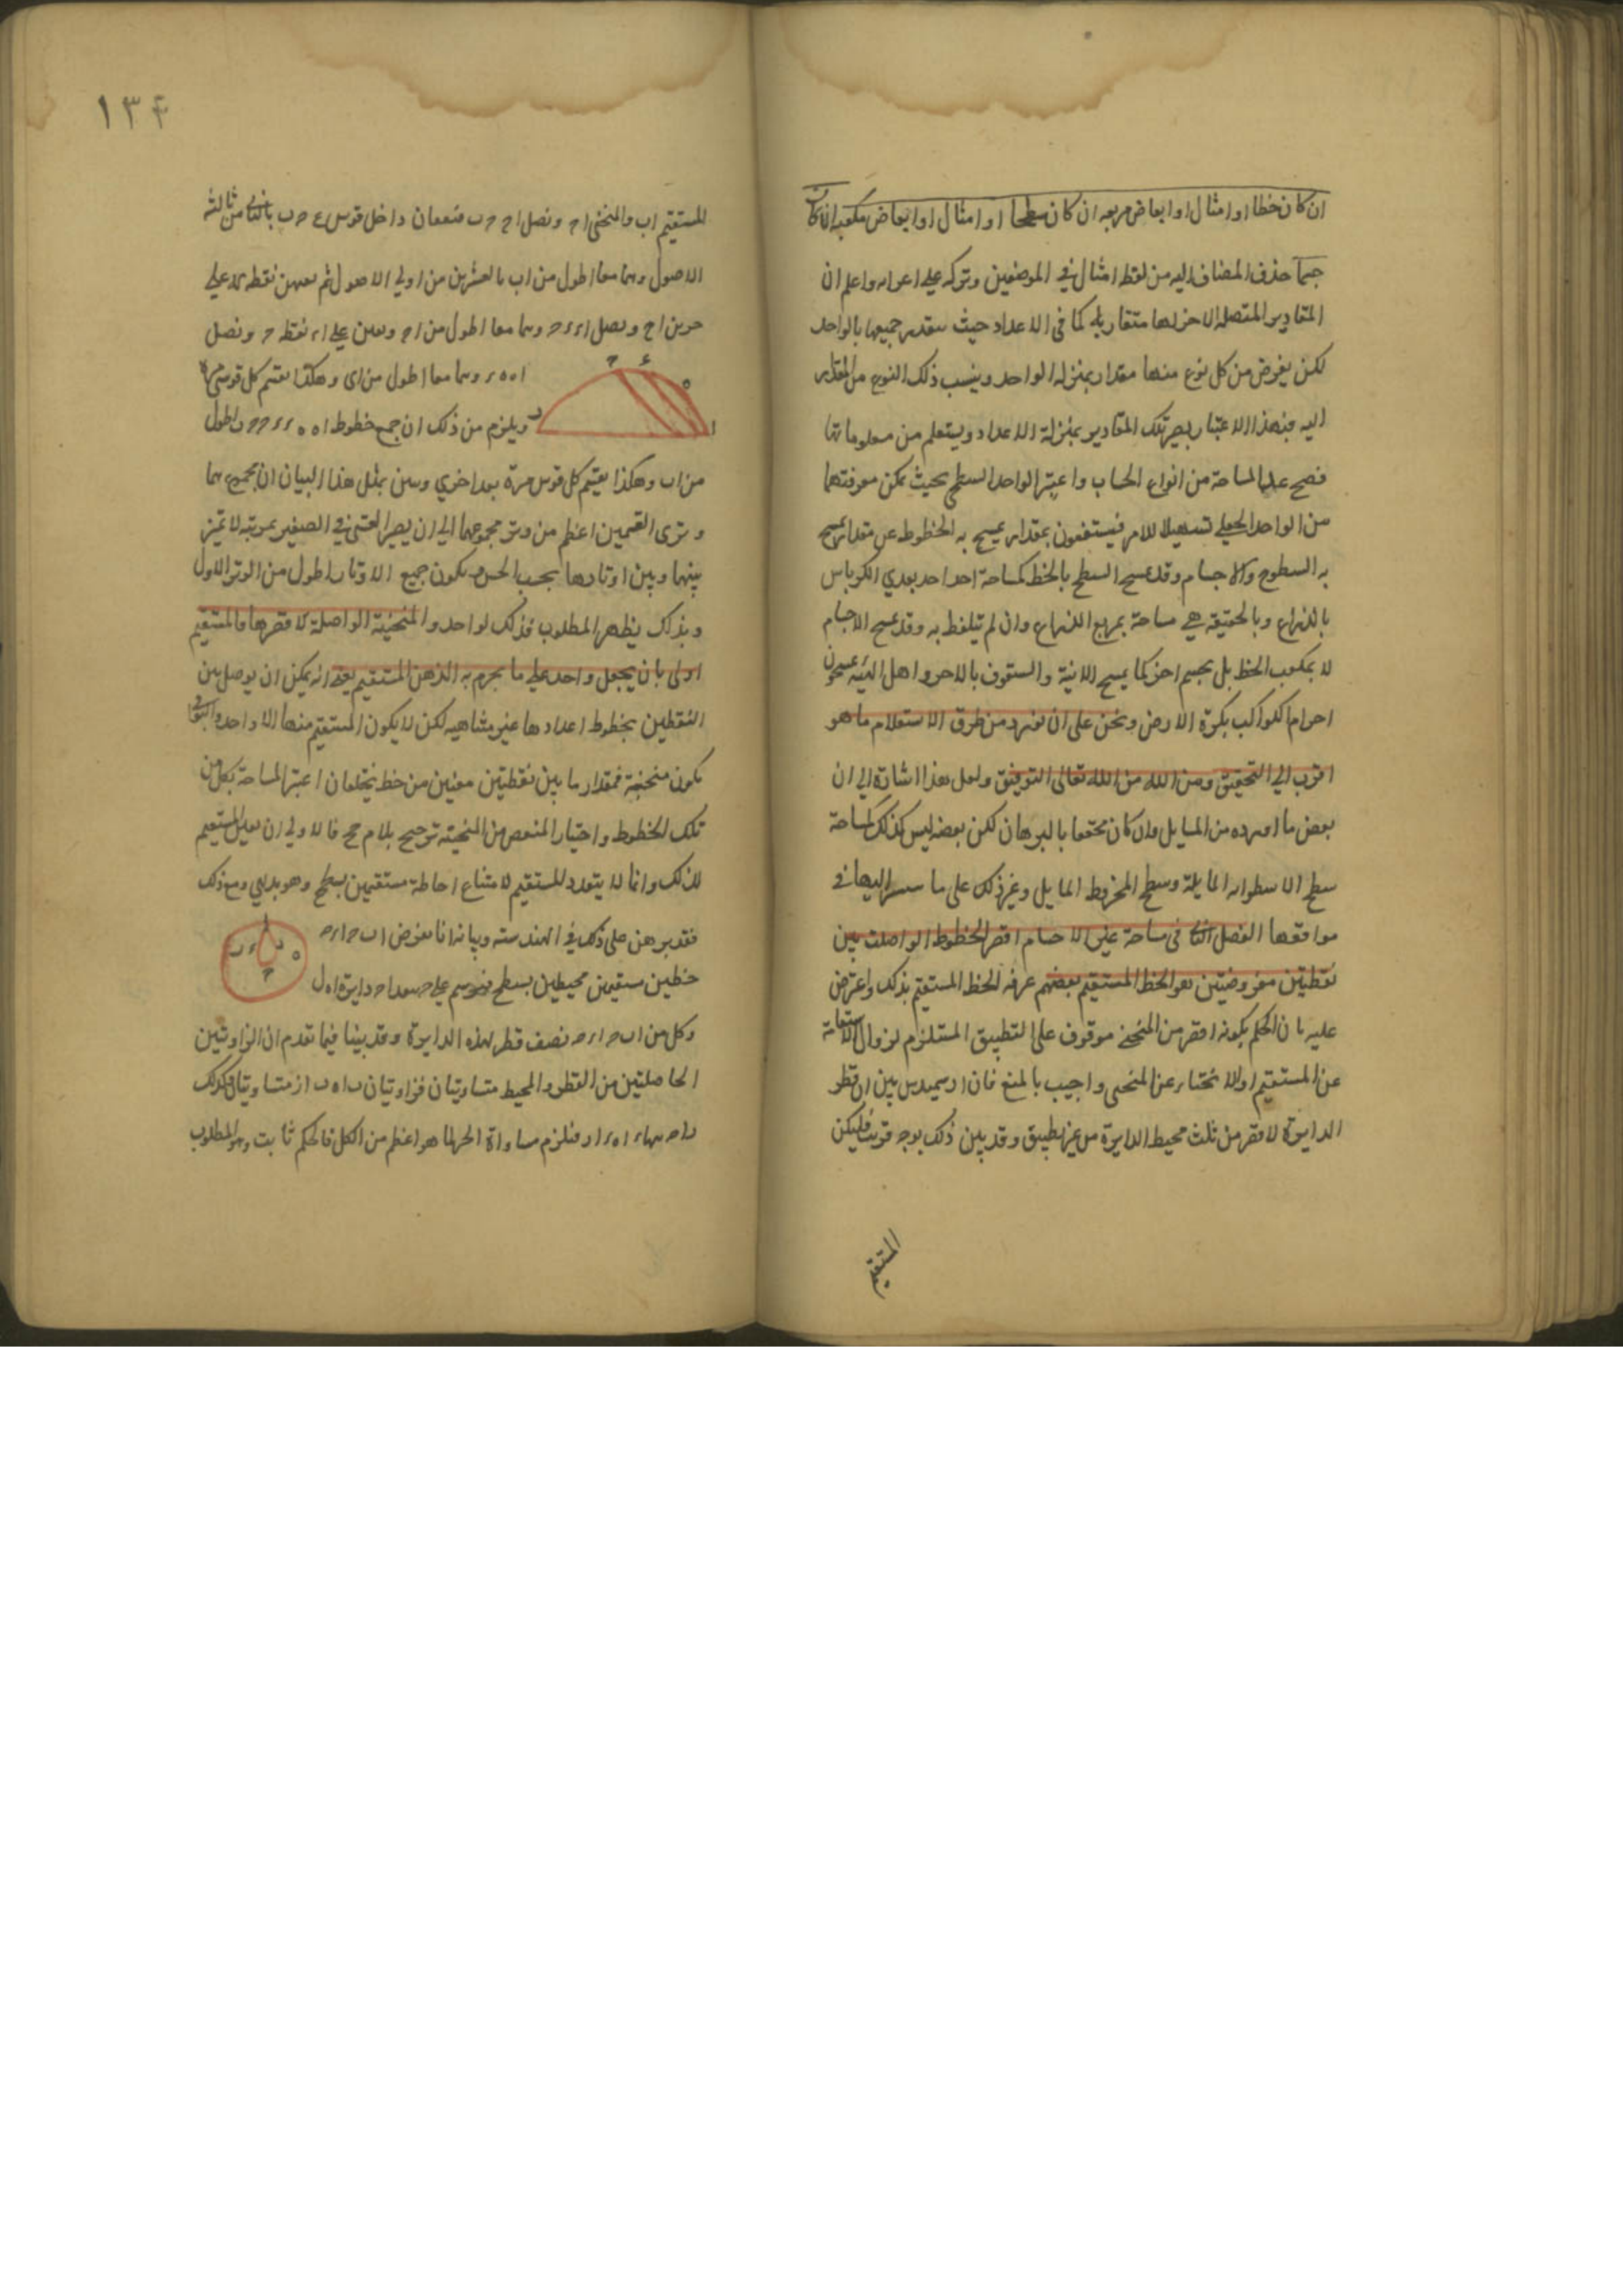 ان كان خطا او امثال او ابعاض مربعه ان كان سطحا او امثال او ابعاض مكعبه ان كان
جسما حذف المضاف اليه من لفظ امثال في الموضعين وتركه على اعرابه واعلم ان
المقادير المتصله لا جزء لها كما فى الاعداد حيث جميعها بالواحد
لكن يفرض من كل نوع منها مقدار بمنزله الواحد وينسب ذلك النوع من المقدار
اليه فبهذا الاعتبار يصير تلك المقادير بمنزلة الاعداد ويستعلم من معلوماتها
فصح عد المساحة من انواع الحساب واعتبر الواحد السطحى بحيث يمكن معرفتهما
من الواحد الخطى تسهيلا للامر فيستغنون بمقدار يمسح به الخطوط عن مقدار يمسح
به السطوح والاجسام وقد يمسح السطح بالخط كمساحة احد احد بعدي الكرباس
بالذراع وبالحقيقه هي مساحة بمربع الذراع وان لم يتلفظ به وقد يمسح الاجسام
لا بمكعب الخط بل بجسم اخر كما يمسح الابنية والسقوف بالاجر واهل الهيئه يمسحون
اجرام الكواكب بكرة الارض ونحن على ان نورد من طرق الاستعلام ما هو
اقرب الي التحقيق ومن الله تعالى التوفيق ولعل هذا اشارة الي ان
بعض ما اورده من المسايل وان كان محققا بالبرهان لكن بعضه ليس كذلك كمساحة
سطح الاسطوانه المايلة وسطح المخروط المايل وغير ذلك على ما سنشير اليها فى
مواقعها الفصل الثانى فى مساحة غير الاجسام اقصر الخطوط الواصلة بين
نقطتين مفروضتين هو الخط المستقيم بعضهم عرفه الخط المستقيم بذلك واعترض
عليه بان الحكم بكونه اقصر من المنحنى موقوف على التطبيق المستلزم لزوال الاستقامة
عن المستقيم او الانحناء عن المنحنى واجيب بالمنع فان ارشميدس بين ان قطر
الدايرة لا قصر من ثلث محيط الدايرة من غير تطبيق وقد يبين ذلك بوجه قريب فليكن
المستقيم
١٣٤
المستقيم اب والمنحنى ا ح ونصل ا ح ح ب فيقعان داخل قوس ء ح ب بالثانى من ثالثه
الاصول وهما معا اطول من اب بالعشرين من اولي الاصول ثم نعين نقطه ء على
قوس ا ح ونصل ا ء ء ح وهما معا اطول من ا ح ونعين على ا ء نقطه ه ونصل
ا ه ه ء وهما معا اطول من ا ء وهكذا نقسم كل قوس
ويلزم من ذلك ان جمع خطوط ا ه ه ء ء ح ح ب اطول
من اب وهكذا يقسم كل قوس مرة بعد اخري وبين بمثل هذا البيان ان مجموع
وترى القسمين اعظم من وتر مجموعهما الي ان يصير القسى في الصغر بمرتبه لا تميز
بينها وبين اوتادها بحسب الحس فيكون جميع الاوتار اطول من الوتر الاول
وبذلك يظهر المطلوب فذلك لواحد والمنحنية الواصلة لا قصرها فالمستقيم
اولى بان يجعل واحد على ما يجزم به الذهن المستقيم يعنى انه يمكن ان يوصل بين
النقطتين بخطوط اعدادها غير متناهيه لكن لا يكون المستقيم منها الا واحد والبواقى
يكون منحنية فمقدار ما بين نقطتين معينين من خط يختلف ان اعتبر المساحة بكل من
تلك الخطوط واختيار البعض من المنحنيه ترجيح بلا مرجح فالاولي ان يعين المستقيم
لذلك وانما لا يتعدد المستقيم لامتناع احاطة مستقيمين بسطح وهو بديهي ومع ذلك
فقد برهن على ذلك في الهندسة وبيانه انا نفرض اب ح ا ء ح
خطين مستقيمين محيطين بسطح فنرسم على ح ببعد ا ح دايرة ا ه ل
وكل من اب ح ا ء ح نصف قطر لهذه الدايرة وقد بينا فيما تقدم ان الزاويتين
الحاصلتين من القطر والمحيط متساويتان فزاويتان ب ا ه ب ا ر متساويتان وكذلك
ء ا ه ء ا ر فيلزم مساواة الجزء لما هو اعظم من الكل فالحكم ثابت وهو المطلوب